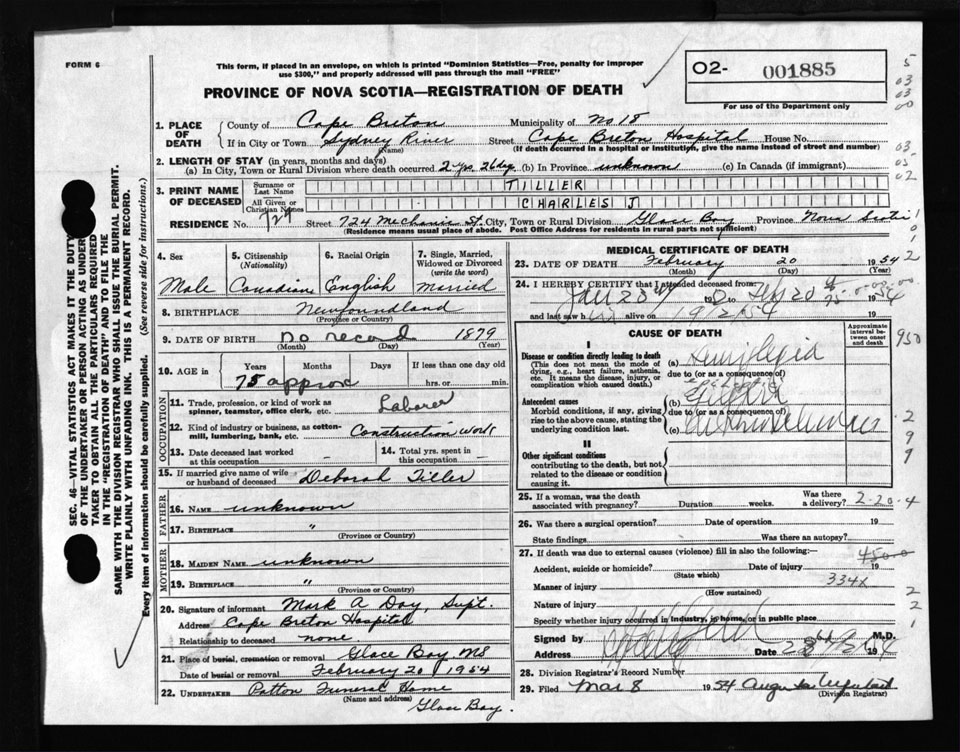 FORM 6
This form, if placed in an envelope, on which is printed "Dominion Statistics—Free, penalty for improper
use $300," and properly addressed will pass through the mail "FREE"
PROVINCE OF NOVA SCOTIA—REGISTRATION OF DEATH
O2- 001885
For use of the Department only
5
03
03
00
03
05
02
1. PLACE OF DEATH
County of Cape Breton Municipality of No 18
If in City or Town Sydney River Street Cape Breton Hospital House No.
(Name) (If death occurred in a hospital or institution, give the name instead of street and number)
2. LENGTH OF STAY (in years, months and days)
(a) In City, Town or Rural Division where death occurred 2 yrs. 26 dys (b) In Province unknown (c) In Canada (if immigrant)
3. PRINT NAME OF DECEASED
Surname or Last Name TILLER
All Given or Christian Names CHARLES J
RESIDENCE No. 724 Street 724 Mechanic St. City, Town or Rural Division Glace Bay Province Nova Scotia
(Residence means usual place of abode. Post Office Address for residents in rural parts not sufficient)
4. Sex
Male
5. Citizenship (Nationality)
Canadian
6. Racial Origin
English
7. Single, Married, Widowed or Divorced (write the word)
Married
8. BIRTHPLACE Newfoundland
(Province or Country)
9. DATE OF BIRTH no record 1879
(Month) (Day) (Year)
10. AGE in Years Months Days If less than one day old
75 approx hrs. or min.
OCCUPATION
11. Trade, profession, or kind of work as
spinner, teamster, office clerk, etc. Laborer
12. Kind of industry or business, as cotton-
mill, lumbering, bank, etc. Construction work
13. Date deceased last worked
at this occupation -
14. Total yrs. spent in
this occupation -
15. If married give name of wife
or husband of deceased Deborah Tiller
FATHER
16. NAME unknown
17. BIRTHPLACE "
(Province or Country)
MOTHER
18. MAIDEN NAME unknown
19. BIRTHPLACE "
(Province or Country)
20. Signature of informant Mark A Day, Supt.
Address Cape Breton Hospital
Relationship to deceased none
21. Place of burial, cremation or removal Glace Bay, NS
Date of burial or removal February 20 1954
22. UNDERTAKER Patton Funeral Home
(Name and address)
Glace Bay.
MEDICAL CERTIFICATE OF DEATH
23. DATE OF DEATH February 20 1954
(Month) (Day) (Year)
24. I HEREBY CERTIFY that I attended deceased from
Jan 20 19 to Feb 20 1954
and last saw him alive on 19/2/54 19
CAUSE OF DEATH
Approximate interval between onset and death
I
Disease or condition directly leading to death
(This does not mean the mode of dying, e.g., heart failure, asthenia, etc. It means the disease, injury, or complication which caused death.)
(a) Hemiplegia
due to (or as a consequence of)
Antecedent causes
Morbid conditions, if any, giving rise to the above cause, stating the underlying condition last.
(b)
due to (or as a consequence of)
(c) Arteriosclerosis
II
Other significant conditions
contributing to the death, but not related to the disease or condition causing it.
25. If a woman, was the death associated with pregnancy? Duration weeks. Was there a delivery? 2-20-4
26. Was there a surgical operation? Date of operation 19
State findings Was there an autopsy?
27. If death was due to external causes (violence) fill in also the following: 450-0
Accident, suicide or homicide? Date of injury 19
(State which)
Manner of injury 334x
(How sustained)
Nature of injury
Specify whether injury occurred in industry, in home, or in public place
Signed by M.D.
Address Date 19
28. Division Registrar's Record Number
29. Filed Mar 8 1954
(Division Registrar)
SEC. 46—VITAL STATISTICS ACT MAKES IT THE DUTY
OF THE UNDERTAKER OR PERSON ACTING AS UNDER-
TAKER TO OBTAIN ALL THE PARTICULARS REQUIRED
IN THE "REGISTRATION OF DEATH" AND TO FILE THE
SAME WITH THE DIVISION REGISTRAR WHO SHALL ISSUE THE BURIAL PERMIT.
WRITE PLAINLY WITH UNFADING INK. THIS IS A PERMANENT RECORD.
Every item of information should be carefully supplied. (See reverse side for instructions.)